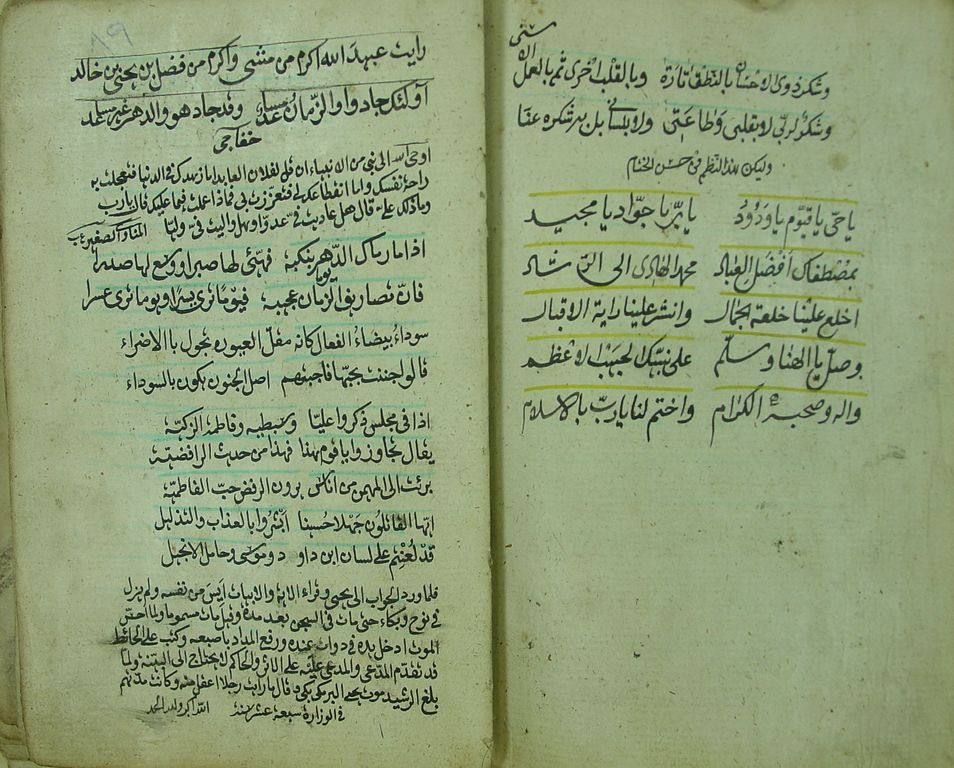 وشكر ذوى الاحسان بالنطق تارة وبالقلب اخرى ثم بالعمل الاسنى
وشكرى لربى لا بقلبى وطاعتى ولا بلسانى بل به شكره عنا
وليكن هذا النظم فى حسن الختام
يا حى يا قيوم يا ودود يا بر يا جواد يا مجيد
بمصطفاك افضل العباد محمد الهادى الى الرشاد
اخلع علينا خلعة الجمال وانشر علينا راية الاقبال
وصل يا الهنا وسلم على نبيك الحبيب الاعظم
واله وصحبه الكرام واختم لنا يا رب بالاسلام
٨٩
رايت عبيد الله اكرم من مشى واكرم من فضل بن يحيى بن خالد
اولئك جادوا والزمان مساعد وقد جاد هو والدهر غير مساعد
خفاجى
اوحى الله الى نبى من الانبياء ان قل لفلان العابد اما زهدك فى الدنيا فتعجلت به
راحة نفسك واما انقطاعك الى فتعززت بى فماذا عملت فيما عليك قال يا رب
وما ذلك على قال هل عاديت فى عدوا وهل واليت فى وليا المناوى الصغير
اذا ما رماك الدهر يوما بنكبة فهيئ لها صبرا ووسع لها صدرا
فان تصاريف الزمان عجيبة فيوما ترى يسرا ويوما ترى عسرا
سوداء بيضاء الفعال كانها مقل العيون تجول بالاضراء
قالوا جننت بحبها فاجبتهم اصل الجنون يكون بالسوداء
اذا فى مجلس ذكروا عليا وسبطيه وفاطمة الزكية
يقال تجاوزوا يا قوم هذا فهذا من حديث الرافضية
برئت الى المهيمن من اناس يرون الرفض حب الفاطمية
ايها القاتلون جهلا حسينا ابشروا بالعذاب والتذليل
قد لعنتم على لسان ابن داود وموسى وحامل الانجيل
فلما ورد الجواب الى يحيى وقراء الاية والابيات ايس من نفسه ولم يزل
فى نوح وبكاء حتى مات فى السجن بعد مدة وقيل مات مسموما ولما احتضر
الموت ادخل يده فى دوات عنده ورفع المداد باصبعه وكتب على الحائط
قد تقدم المدعى والمدعى عليه على الاثر والحاكم لا يحتاج الى البينة ولما
بلغ الرشيد موت يحيى البرمكى بكى وقال ما رايت رجلا اعقل منه وكانت مدتهم
فى الوزارة سبعة عشر سنة